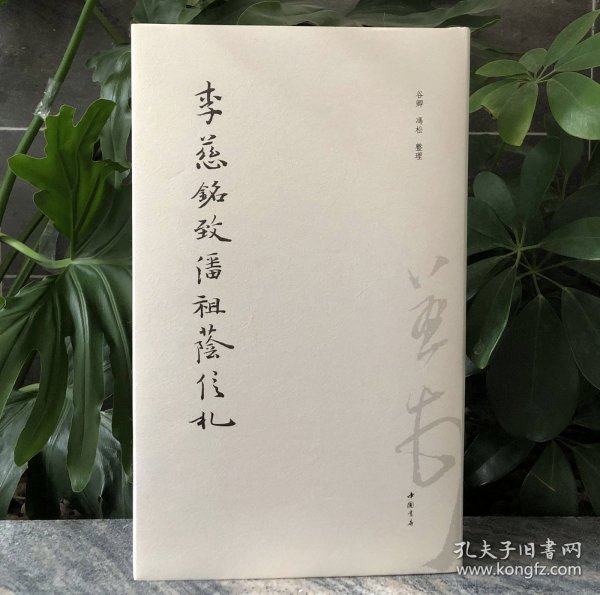 李慈銘致潘祖蔭信札
谷卿 馮松 整理
中國書店
孔夫子旧書网
www.kongfz.com